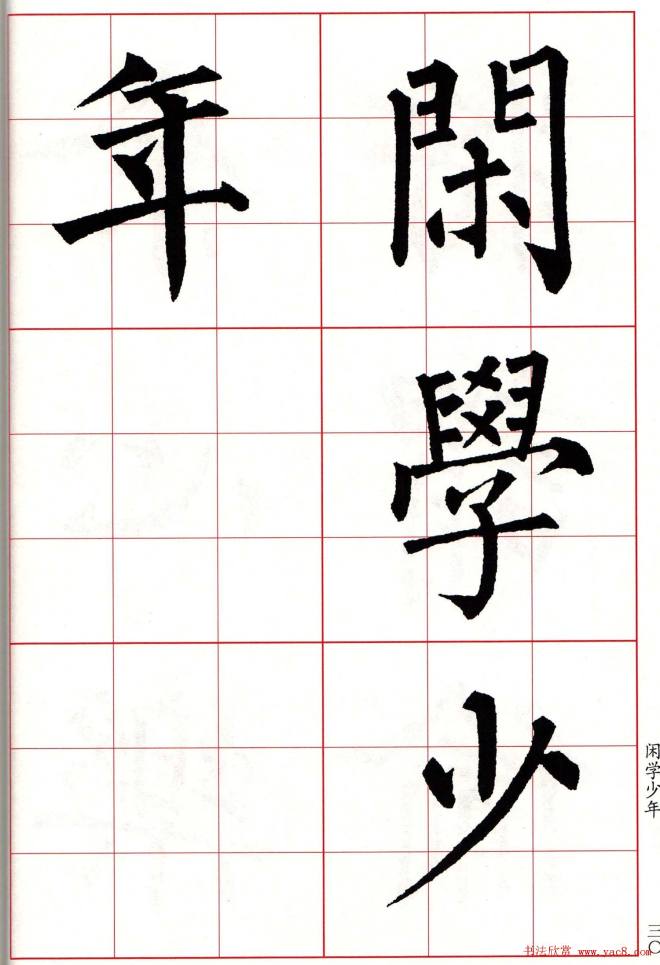 閑學少
年
闲学少年
三〇
书法欣赏 www.yac8.com